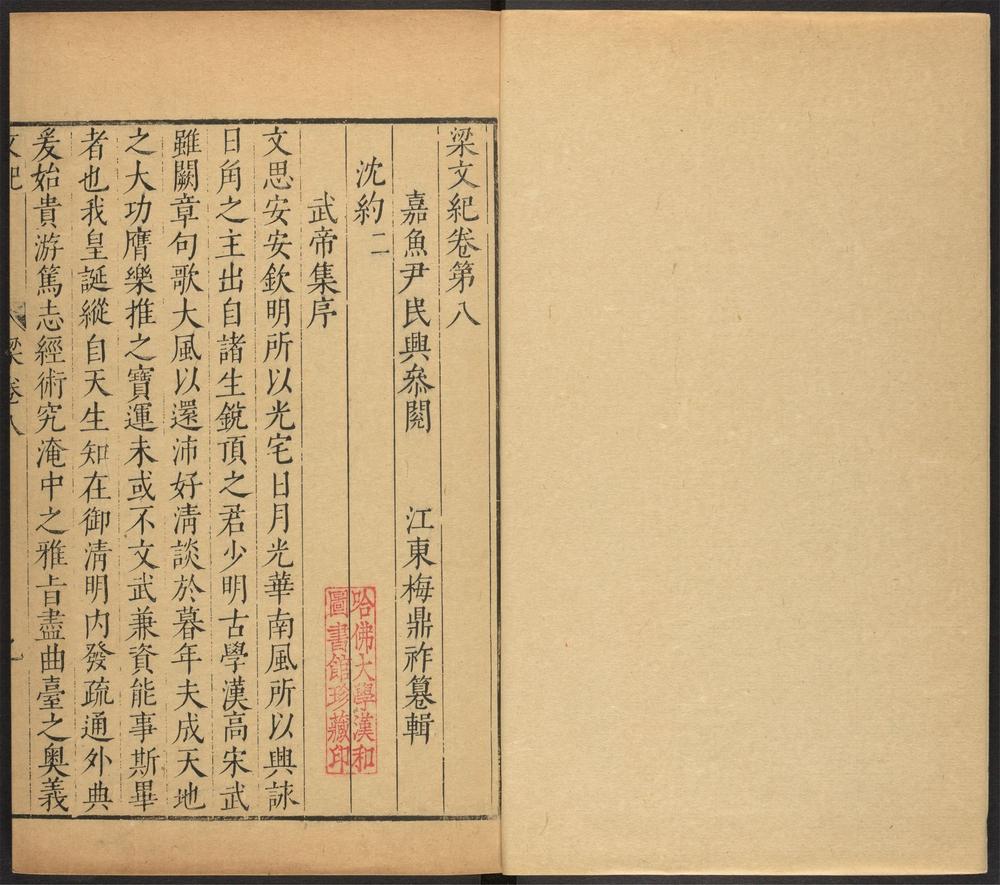 梁文紀卷第八
嘉魚尹民興叅閱　江東梅鼎祚纂輯
沈約二
武帝集序
文思安安欽明所以光宅日月光華南風所以興詠
日角之主出自諸生銳頂之君少明古學漢高宋武
雖闕章句歌大風以還沛好清談於暮年夫成天地
之大功膺樂推之寶運未或不文武兼資能事斯畢
者也我皇誕縱自天生知在御清明內發疏通外典
爰始貴游篤志經術究淹中之雅旨盡曲臺之奧義
文紀　梁卷八
哈佛大學漢和
圖書館珍藏印